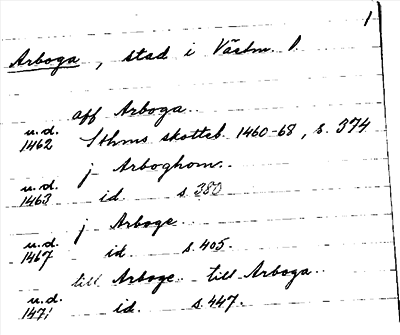 1
Arboga, stad i Västm. l.
aff Arboga..
u.d.
1462 Sthms skotteb. 1460-68, s. 374
j Arboghom..
u.d.
1463 id. s. 380
j Arboge..
u.d.
1467 id. s. 405.
till Arboge.. till Arboga..
u.d.
1471 id. s. 447.